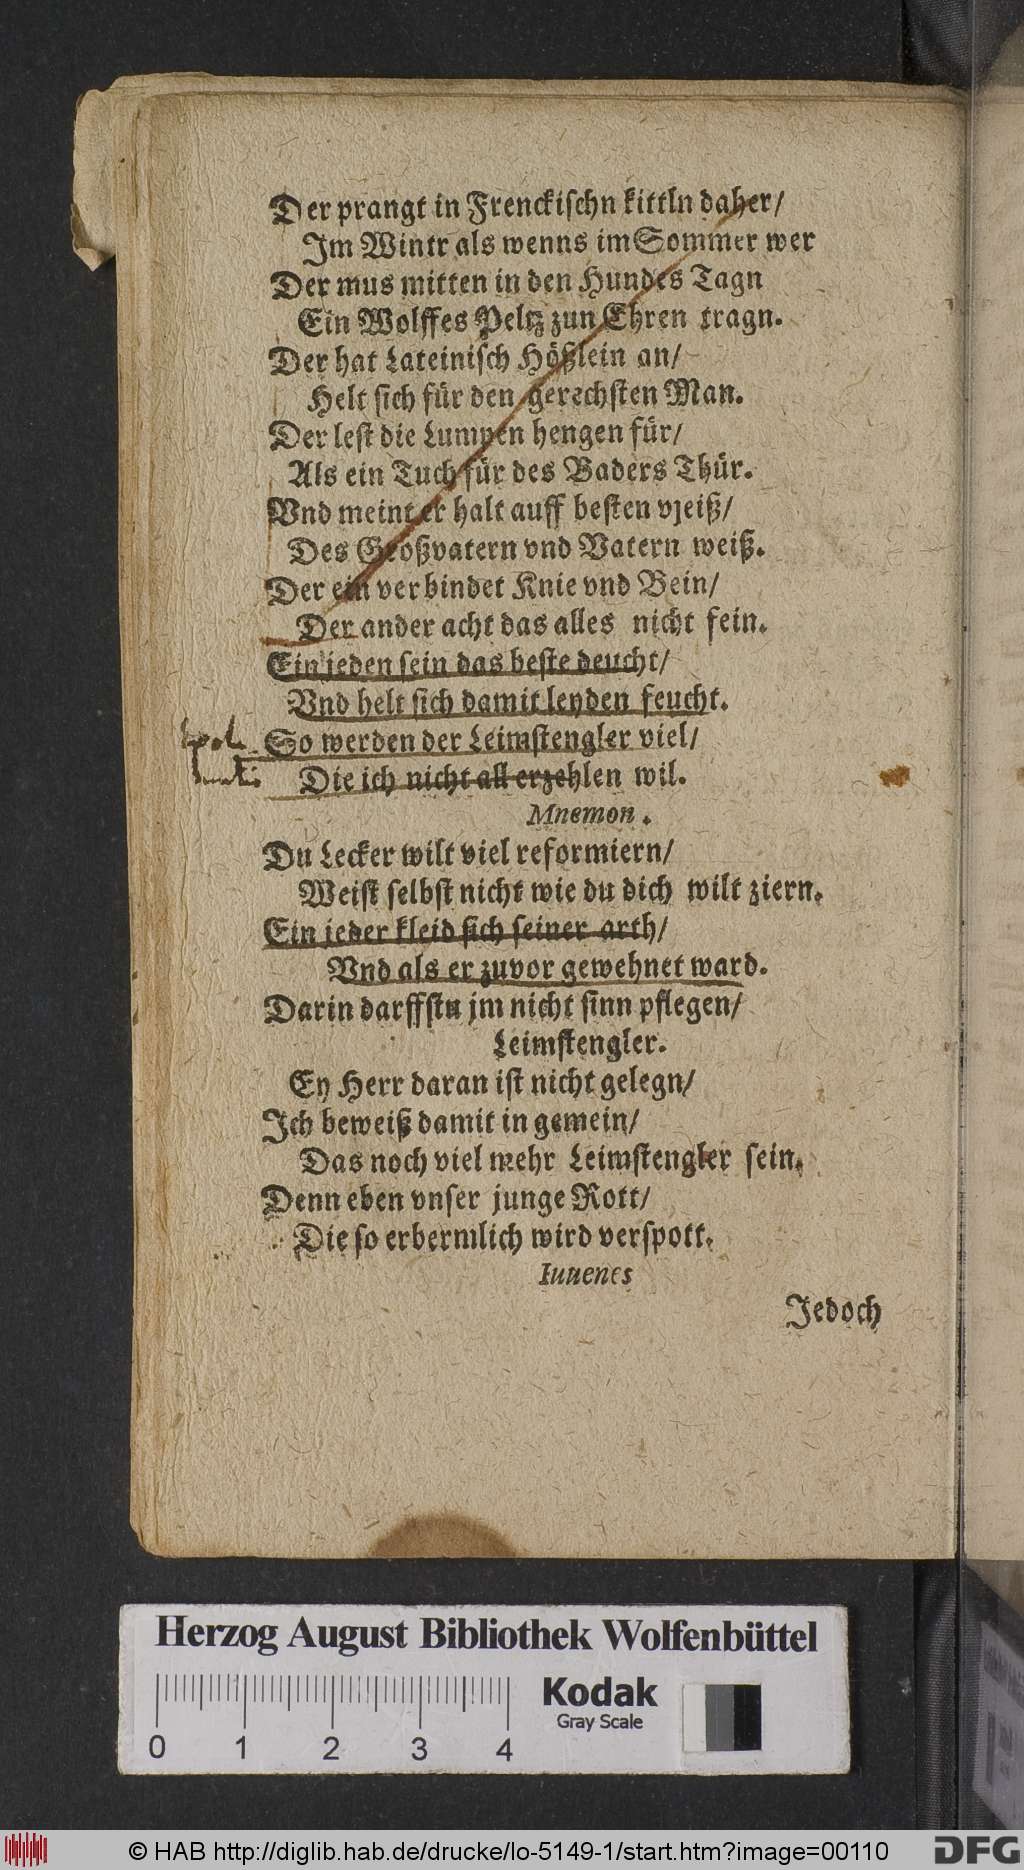 Der prangt in Frenckischn kittln daher/
Im Wintr als wenns im Sommer wer
Der mus mitten in den Hundes Tagn
Ein Wolffes Peltz zun Ehren tragn.
Der hat Lateinisch Hößlein an/
Helt sich für den gerechsten Man.
Der lest die Lumpen hengen für/
Als ein Tuch für des Baders Thür.
Vnd meint er halt auff besten vjeiß/
Des Großvatern vnd Vatern weiß.
Der ein verbindet Knie vnd Bein/
Der ander acht das alles nicht fein.
Ein jeden sein das beste deucht/
Vnd helt sich damit leyden feucht.
So werden der Leimstengler viel/
Die ich nicht all erzehlen wil.
Mnemon.
Du Lecker wilt viel reformiern/
Weist selbst nicht wie du dich wilt ziern.
Ein jeder kleid sich seiner arth/
Vnd als er zuvor gewehnet ward.
Darin darffstu jm nicht sinn pflegen/
Leimstengler.
Ey Herr daran ist nicht gelegn/
Ich beweiß damit in gemein/
Das noch viel mehr Leimstengler sein.
Denn eben vnser junge Rott/
Die so erbermlich wird verspott.
Iuuenes
Jedoch
Herzog August Bibliothek Wolfenbüttel
Kodak
Gray Scale
0 1 2 3 4
© HAB http://diglib.hab.de/drucke/lo-5149-1/start.htm?image=00110
DFG